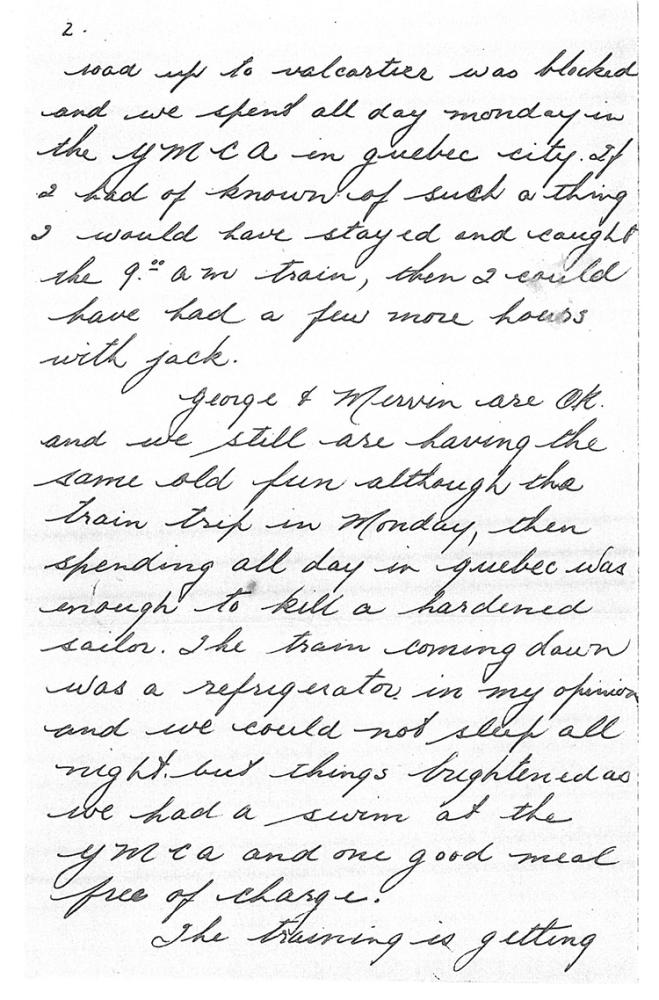 2.
road up to valcartier was blocked
and we spent all day monday in
the YMCA in quebec city. If
I had of known of such a thing
I would have stayed and caught
the 9.00 am train, then I could
have had a few more hours
with jack.
George & Mervin are OK.
and we still are having the
same old fun although the
train trip in Monday, then
spending all day in quebec was
enough to kill a hardened
sailor. The train coming down
was a refrigerator in my opinion
and we could not sleep all
night. but things brightened as
we had a swim at the
YMCA and one good meal
free of charge.
The training is getting